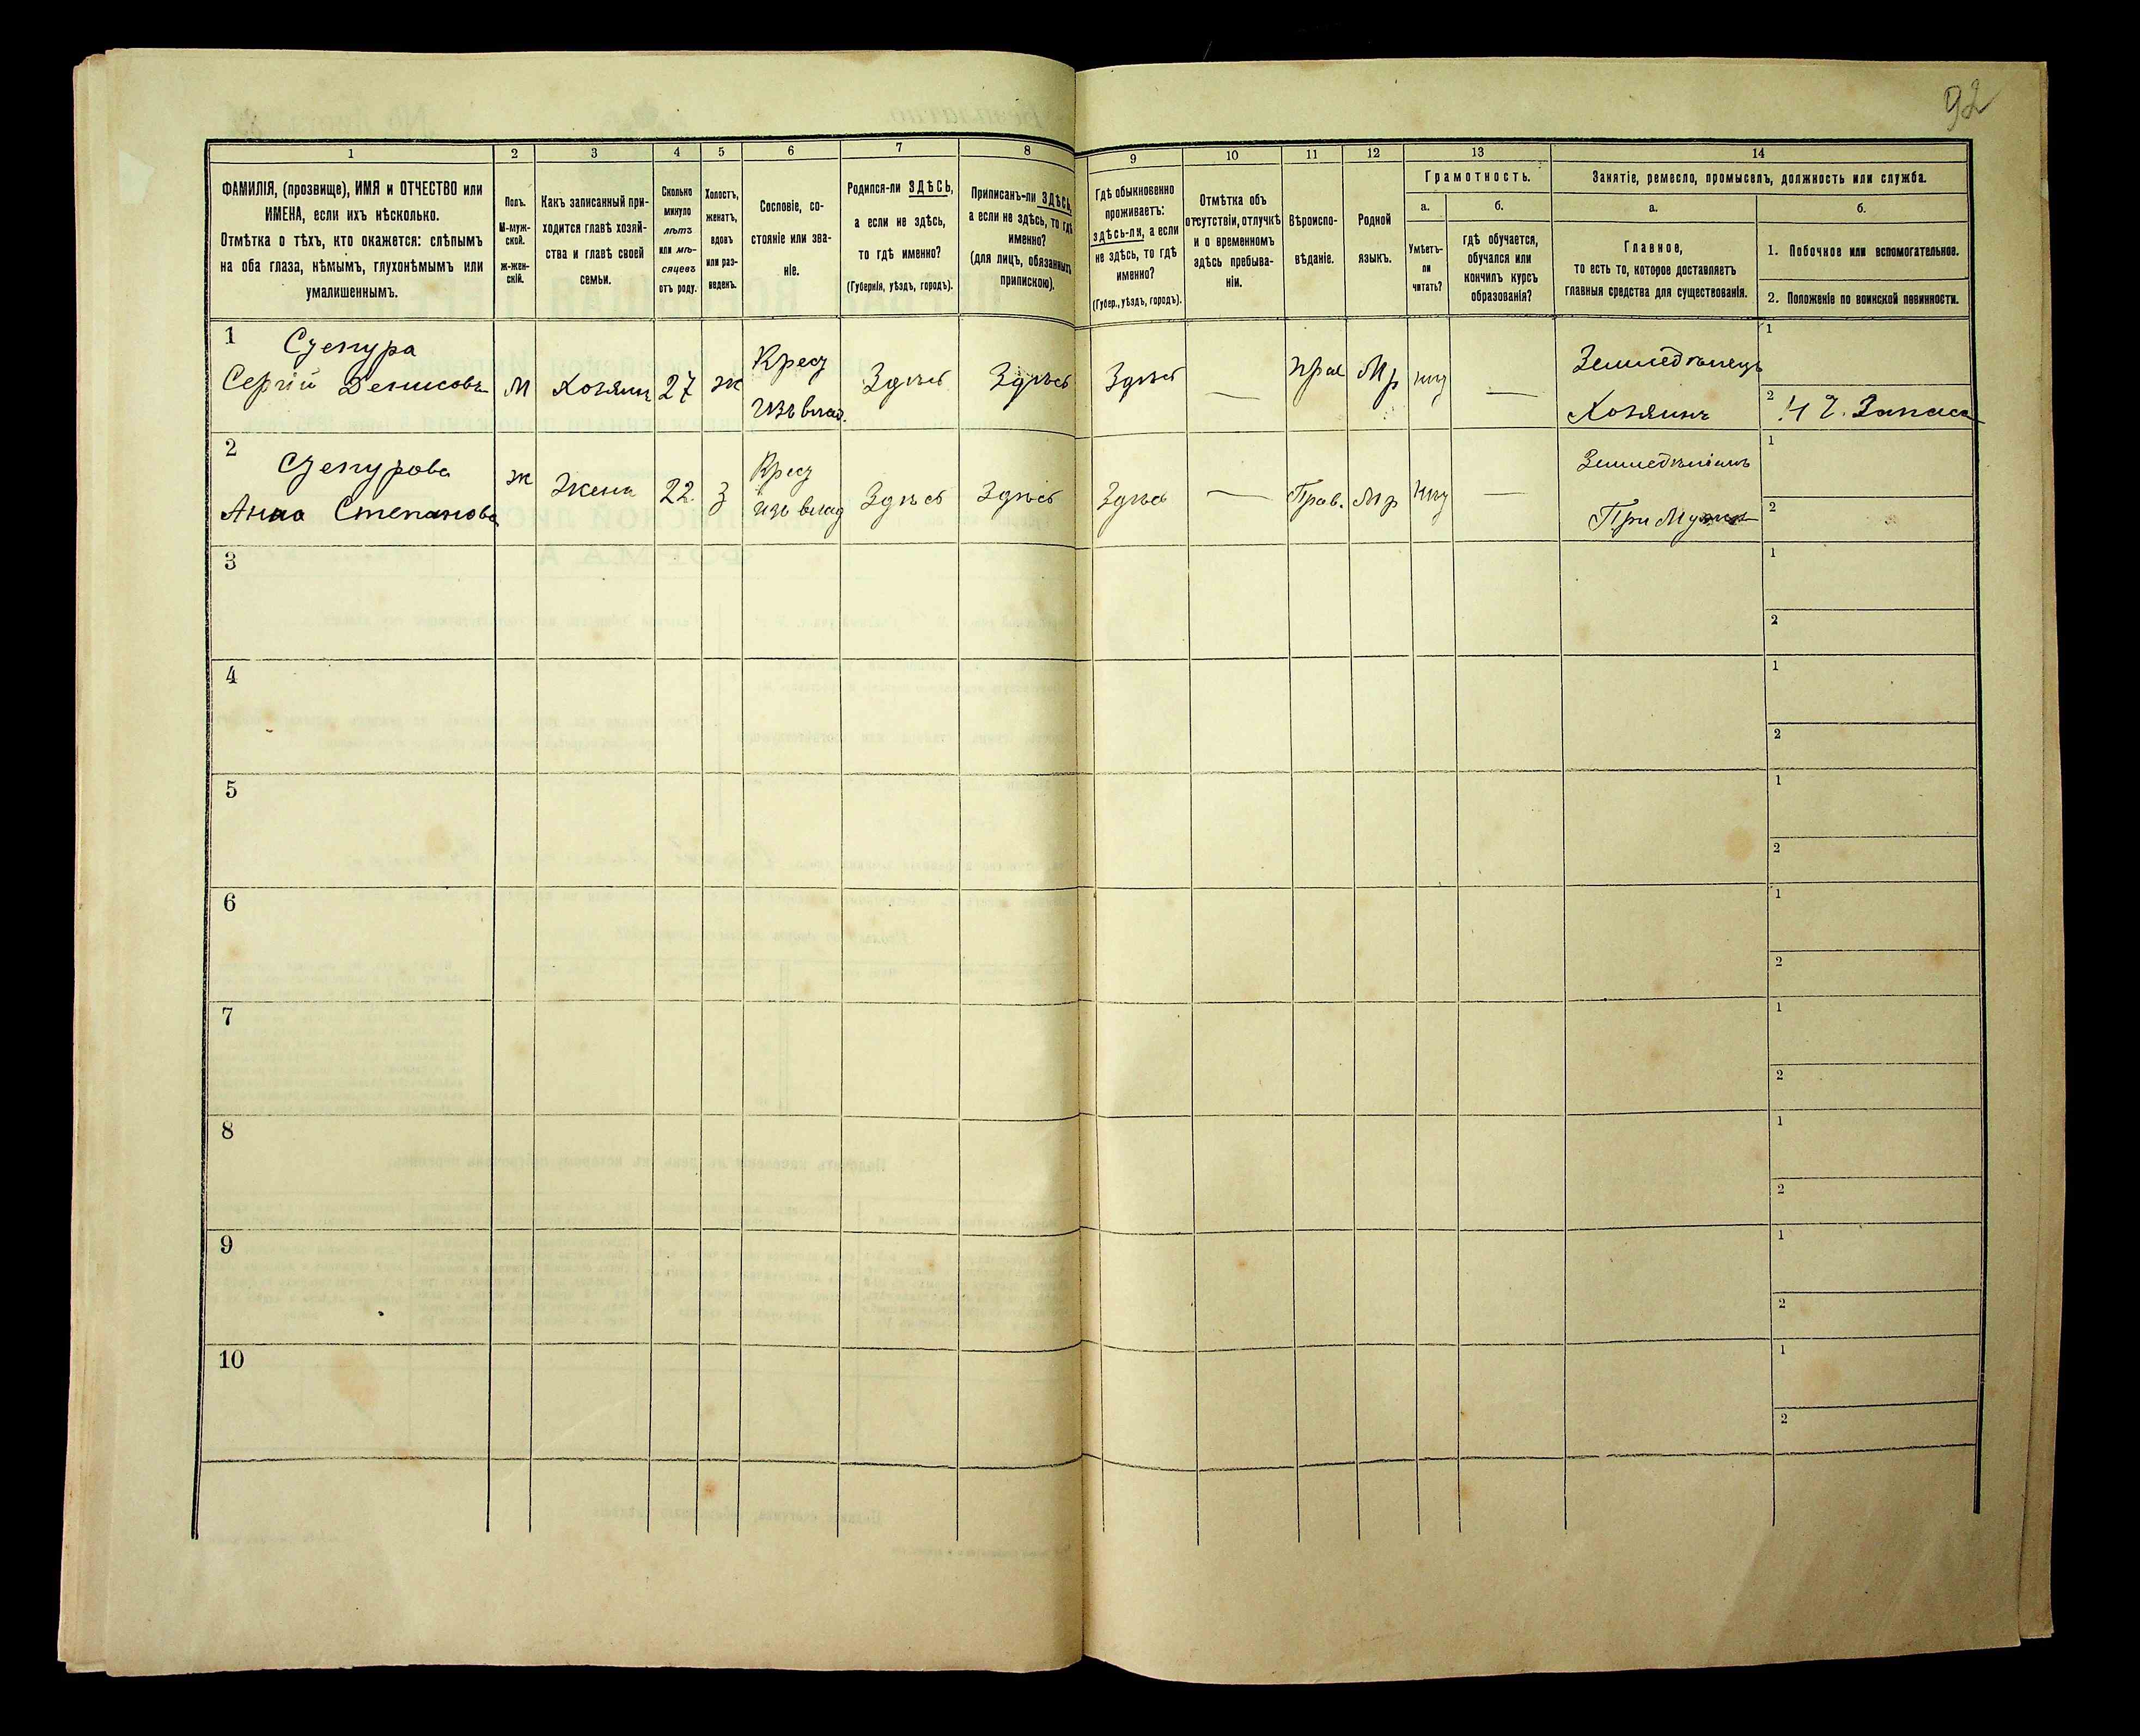 92
1
2
3
4
5
6
7
8
9
10
11
12
13
14
ФАМИЛІЯ, (прозвище), ИМЯ и ОТЧЕСТВО или
ИМЕНА, если ихъ нѣсколько.
Отмѣтка о тѣхъ, кто окажется: слѣпымъ
на оба глаза, нѣмымъ, глухонѣмымъ или
умалишеннымъ.
Полъ.
М-муж-
ской.
ж-жен-
скій.
Какъ записанный при-
ходится главѣ хозяй-
ства и главѣ своей
семьи.
Сколько
минуло
лѣтъ
или мѣ-
сяцевъ
отъ роду.
Холостъ,
женатъ,
вдовъ
или раз-
веденъ.
Сословіе, со-
стояніе или зва-
ніе.
Родился-ли ЗДѢСЬ,
а если не здѣсь,
то гдѣ именно?
(Губернія, уѣздъ, городъ).
Приписанъ-ли ЗДѢСЬ,
а если не здѣсь, то гдѣ
именно?
(для лицъ, обязанныхъ
припискою).
Гдѣ обыкновенно
проживаетъ:
здѣсь-ли, а если
не здѣсь, то гдѣ
именно?
(Губер., уѣздъ, городъ).
Отмѣтка объ
отсутствіи, отлучкѣ
и о временномъ
здѣсь пребыва-
ніи.
Вѣроиспо-
вѣданіе.
Родной
языкъ.
Грамотность.
а.
Умѣетъ-
ли
читать?
б.
гдѣ обучается,
обучался или
кончилъ курсъ
образованія?
Занятіе, ремесло, промыселъ, должность или служба.
а.
Главное,
то есть то, которое доставляетъ
главныя средства для существованія.
б.
1. Побочное или вспомогательное.
2. Положеніе по воинской повинности.
1
Сергій Денисовъ
М
Хозяинъ
27
ж
Крес
изъ влад.
Здѣсь
Здѣсь
Здѣсь
—
прав
Мр
—
Земледѣлецъ
Хозяинъ
1
2
Запаса
2
Анна Степанова
ж
Жена
22
З
Крес
изъ влад
Здѣсь
Здѣсь
Здѣсь
—
Прав.
Мр
—
При Мужѣ
1
2
3
1
2
4
1
2
5
1
2
6
1
2
7
1
2
8
1
2
9
1
2
10
1
2